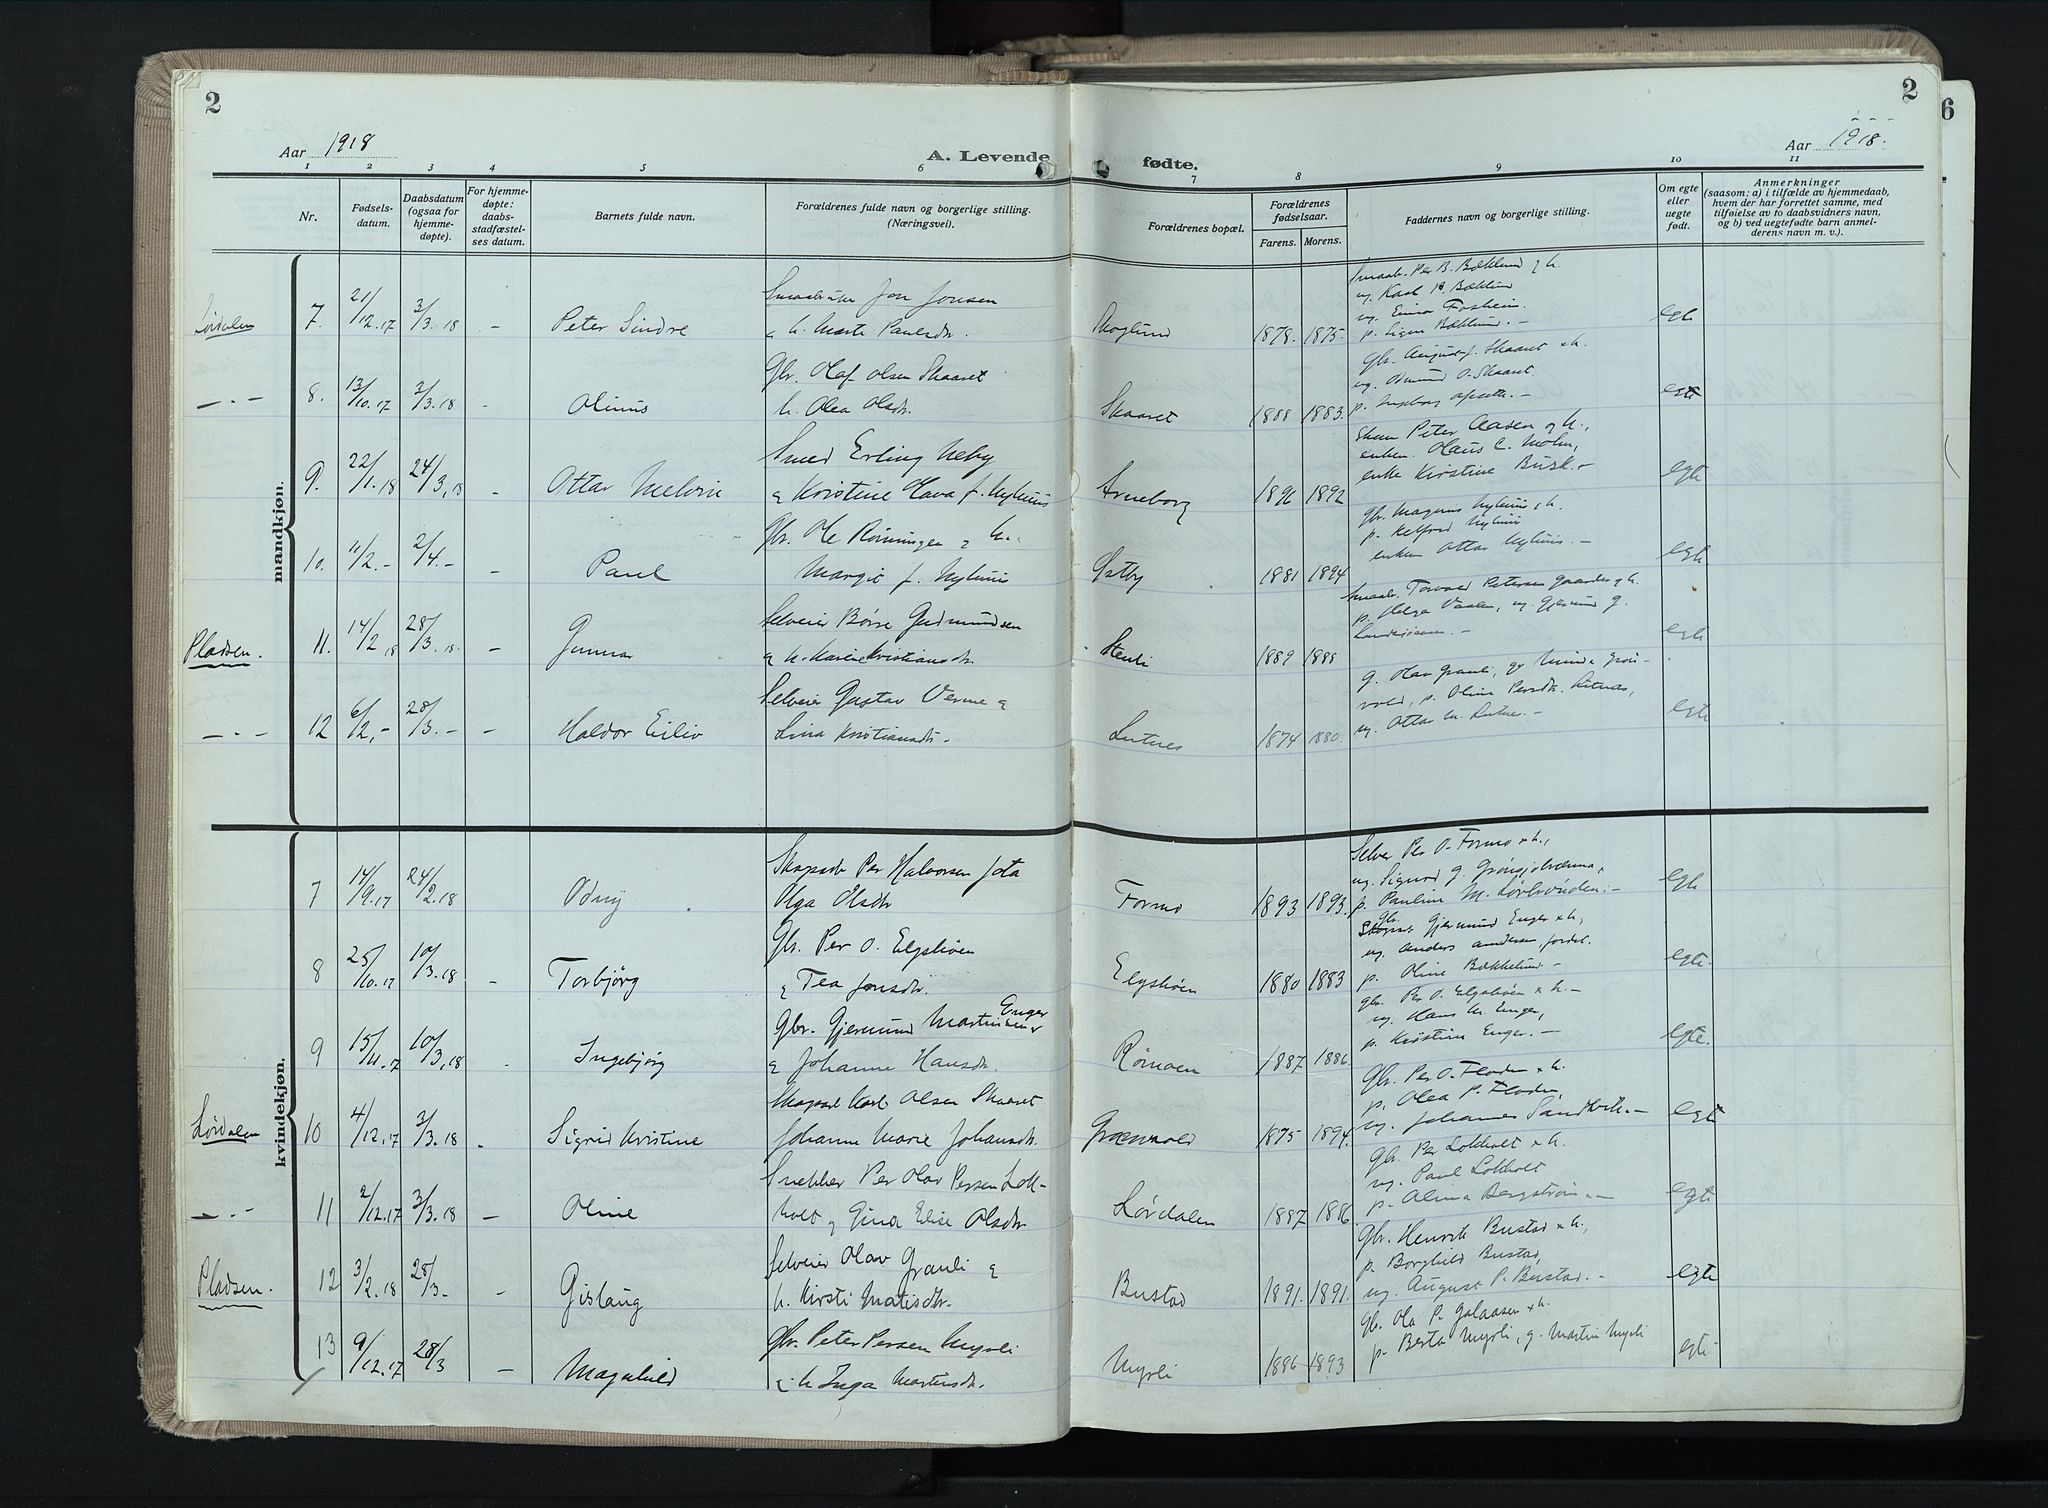 2
2
6
Aar 1918
A. Levende
fødte.
Aar 1918.
1 2 3 4 5 6 7 8 9 10 11
Nr.
Fødsels-
datum.
Daabsdatum
(ogsaa for
hjemme-
døpte).
For hjemme-
døpte:
daabs-
stadfæstel-
ses datum.
Barnets fulde navn.
Forældrenes fulde navn og borgerlige stilling.
(Næringsvei).
Forældrenes bopæl.
Forældrenes
fødselsaar.
Farens. Morens.
Faddernes navn og borgerlige stilling.
Om egte
eller
uegte
født.
Anmerkninger
(saasom: a) i tilfælde av hjemmedaab,
hvem der har forrettet samme, med
tilføielse av to daabsvidners navn,
og b) ved uegtefødte barn anmel-
derens navn m. v.).
mandkjøn.
Lørdalen 7. 21/12.17 3/3.18 - Peter Sindre
Jon Jonsen
& h. Marte Paulsdtr.
Skoglund 1878. 1875.
Smaabr. Per B. Bæklund & h.
ug. Karl B. Bæklund
ug. Einar Fosheim.
p. Signe Bæklund. -
egte
- " - 8. 13/10.17 3/3.18 - Olinus
Gbr. Olaf Olsen Skaaret
h. Olea Olsdtr.
Skaaret 1888 1883.
Gbr. August J. Skaaret & h.
ug. Odmund O. Skaaret.
p. Ingeborg -
egte
9. 22/1.18 24/3.18 - Ottar Melvin
Smed Erling Neby
& Kristine Hava f. Nyhuus
Arneborg 1896 1892
Peter Aasen og h.,
enkem. Olaus C. Moen,
enke Kirstine Busk. -
egte
10. 11/2.- 2/4.- - Paul
Gbr. Ole Rønningen & h.
Margit f. Nyhuus
Østby 1881 1894
Gbr. Magnus Nyhuus & h.
p. Nyhuus
enkem. Ottar Nyhuus. -
egte
Pladsen. 11. 14/2.18 28/3.18. - Gunnar
Selveier Børre Gudmundsen
& h. Karen Kristiansdtr.
Stenli 1889 1888
Smaabr. Torvald Petersen & h.
p. Helga Vaalen, ug. Gjermund G.
egte
- " - 12 6/2.- 28/3.- - Haldor Eiliv
Selveier Gustav Verme &
Lina Kristiansdtr.
Lutnes 1874 1880.
g. Olav Granli, gv. Minda Grøn-
vold, p. Oline Persdtr. Lutnes,
ug. Ottar M. Lutnes. -
egte
kvindekjøn.
7 14/9.17 24/2.18 Odny
Skogsarb. Per Halvorsen
Olga Olsdtr
Formo 1893 1893.
Selvei. Per O. Formo & h.,
ug. Sigurd G.
p. Pauline M. Lørbrøiden. -
egte
8 25/10.17 10/3.18 - Torbjørg
Gbr. Per O. Elgshøen
& Tea Jonsdtr.
Elgshøen 1880 1883
Gbr. Gjermund Enger & h,
ug. Anders Andersen
p. Oline Bækkelund -
egte.
9 15/11.17 10/3.18 - Ingebjørg
Gbr. Gjermund Martinsen Enger
& Johanne Hansdtr.
Rømoen 1887 1886.
Gbr. Per O. Elgshøen & h. -
ug. Hans M. Enger,
p. Kristine Enger. -
egte.
Lørdalen 10 4/12.17 3/3.18 - Sigrid Kristine
Skogsarb Karl Olsen Skaaret
Johanne Marie Johansdtr.
Grønvold 1875 1894.
Gbr. Per O. Floden & h.
p. Olea P. Floden,
ug. Johannes Sandbæk. -
egte
- " - 11 2/12.17 3/3.18 - Oline
Snekker Per Olav Persen Lok-
holt & Gina Elise Olsdtr
Lørdalen 1887 1886
Gbr. Per Lokholt & h.
ug. Paul Lokholt
p. Alma Bergstrøm. -
egte
Pladsen. 12 3/2.18 28/3.- - Gislaug
Selveier Olav Granli &
h. Kirsti Matisdtr.
Bustad 1891. 1891.
Gbr. Henrik Bustad & h.,
p. Borghild Bustad,
ug. August P. Bustad. -
egte
13 9/12.17 28/3 - Magnhild
Gbr. Peter Persen Myrli
& h Inga Martinsdtr.
Myrli 1886 1893
Gb. Ola P. Galaasen & h.
p. Berta Myrli, g. Martin Myrli
egte